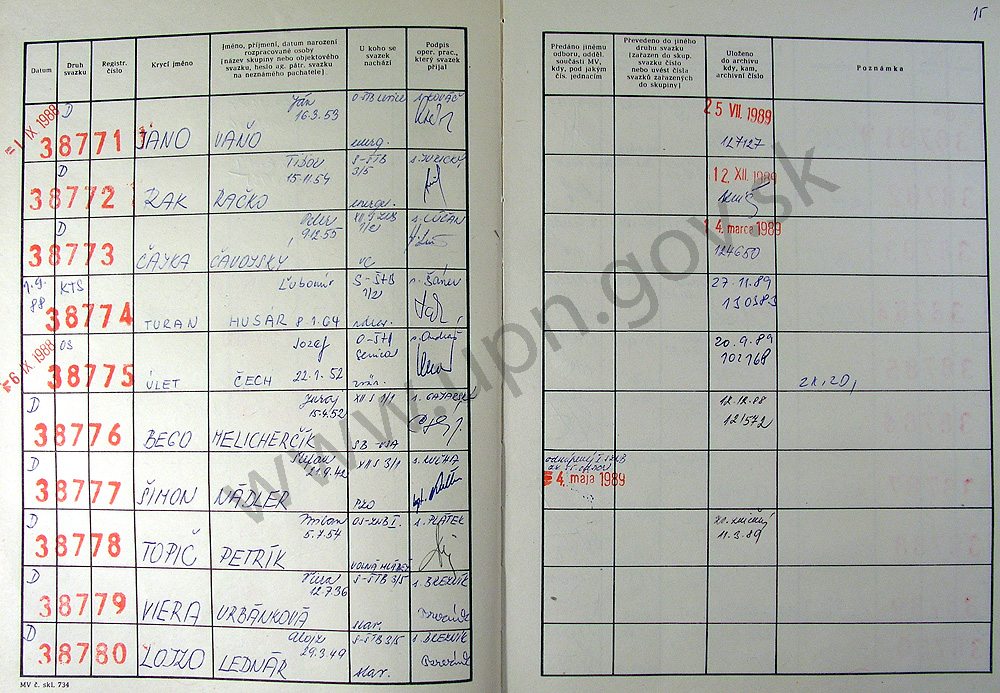 15
Datum
Druh svazku
Registr. číslo
Krycí jméno
Jméno, příjmení, datum narození rozpracované osoby (název skupiny nebo objektového svazku, heslo ag. pátr. svazku na neznámého pachatele)
U koho se svazek nachází
Podpis oper. prac., který svazek přijal
Předáno jinému odboru, odděl. součásti MV, kdy, pod jakým čís. jednacím
Převedeno do jiného druhu svazku (zařazen do skup. svazku číslo nebo uvést čísla svazků zařazených do skupiny)
Uloženo do archivu kdy, kam, archivní číslo
Poznámka
1 IX 1988 D 38771 JANO VAŇO Ján 16.3.53 energ. s. KOVÁČ
25 VII. 1989
127127
D 38772 RAK RAČKO Tibor 15.11.54 S-ŠTB 3/5
12 XII. 1989
D 38773 ČAJKA ČAVOJSKÝ 9.12.55 VC s. LUČAN
4. marca 1989
124650
1.9. 88 KTS 38774 TURAN HUSÁR Ľubomír 8.1.64 S-ŠTB 1/2
27.11.89
6 IX 1988 OS 38775 ÚLET ČECH Jozef 22.1.52 Senica
20.9.89
102768
D 38776 BEGO MELICHERČÍK Juraj 15.4.52
12.12.88
121572
D 38777 ŠIMON NÁDLER Milan 21.9.42
4. maja 1989
D 38778 TOPIČ PETRÍK Milan 5.7.54 s. PLÁTEK
11.3.89
D 38779 VIERA URBÁNKOVÁ Viera 12.7.36 S-ŠTB 3/5
D 38780 LOJZO LEDNÁR Alojz 29.3.49 S-ŠTB 3/5
MV č. skl. 734
www.upn.gov.sk